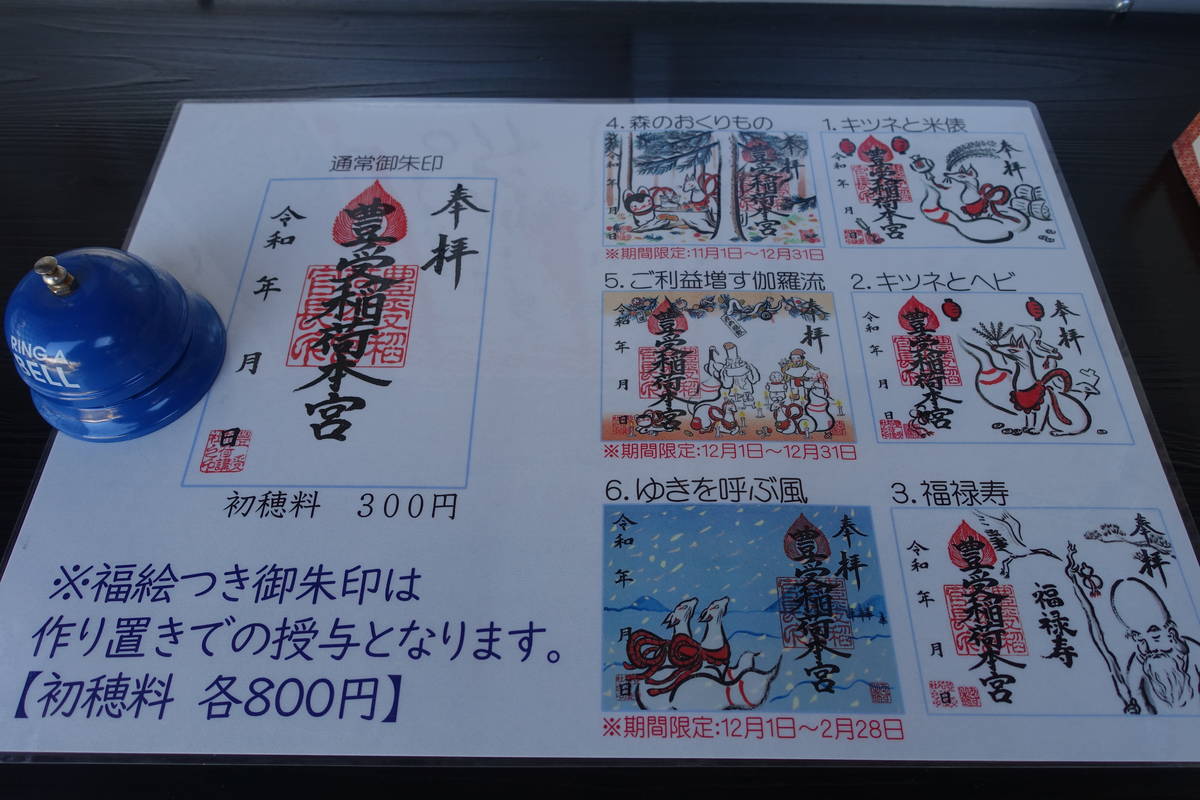 通常御朱印
奉拝
豊受稲荷本宮
令和 年 月 日
初穂料 300円
※福絵つき御朱印は
作り置きでの授与となります。
【初穂料 各800円】
RING A
BELL
4. 森のおくりもの
奉拝
豊受稲荷本宮
令和 年 月 日
※期間限定:11月1日～12月31日
1. キツネと米俵
奉拝
豊受稲荷本宮
令和 年 月 日
5. ご利益増す伽羅流
奉拝
豊受稲荷本宮
令和 年 月 日
※期間限定:12月1日～12月31日
2. キツネとヘビ
奉拝
豊受稲荷本宮
令和 年 月 日
6. ゆきを呼ぶ風
奉拝
豊受稲荷本宮
令和 年 月 日
※期間限定:12月1日～2月28日
3. 福禄寿
奉拝
福禄寿
豊受稲荷本宮
令和 年 月 日